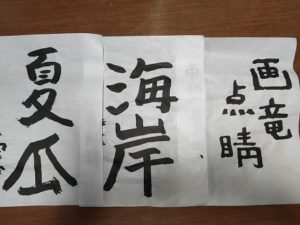 画竜
点睛
海岸
夏瓜